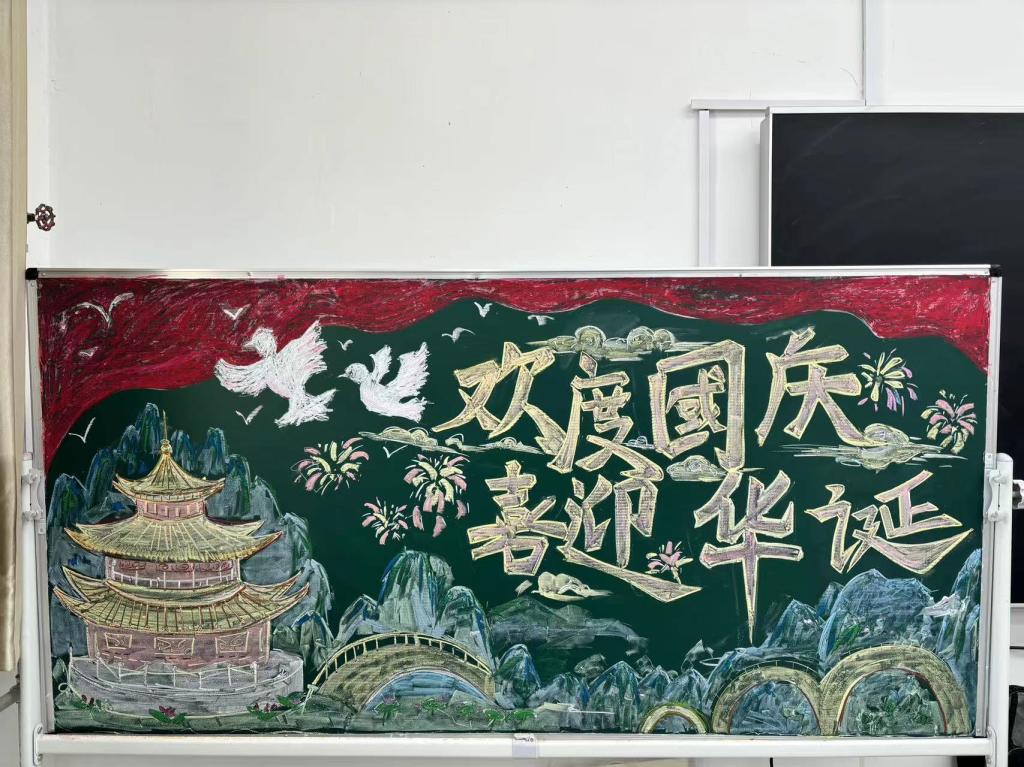 欢度國庆
喜迎华诞